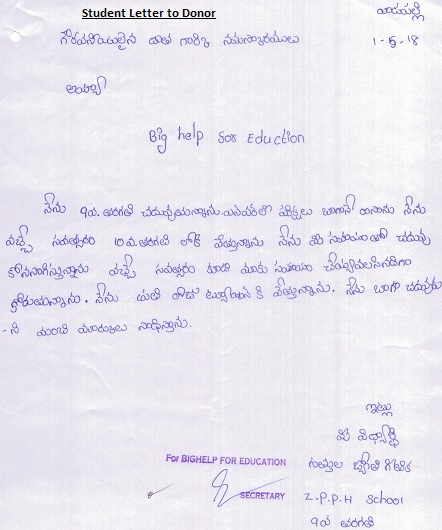 Student Letter to Donor
యడపల్లి
గౌరవనీయులైన దాత గారికి నమస్కారములు
1-5-18
అయ్యా
Big help sor Eduction
నేను 9వ. తరగతి చదువుతున్నాను. పరిక్షలు బాగానే రాసాను నేను
వచ్చే సంవత్సరం 10వ. తరగతి లోకి వెళ్తున్నాను నేను మీ సహాయంతో చదువు
కొనసాగిస్తున్నాను వచ్చే సంవత్సరం కూడా మాకు సహాయం చేయ్యవలసినదిగా
కోరుతున్నాను. నేను ప్రతి రోజు ట్యూషన్ కి వెళ్తున్నాను. నేను బాగా చదువుకు
-ని మంచి మార్కులు సాధిస్తాను.
ఇట్లు
మీ విద్యార్థి
For BIGHELP FOR EDUCATION
గుత్తుల జ్యోతి గీతిక
SECRETARY
Z.P.P.H School
9వ తరగతి